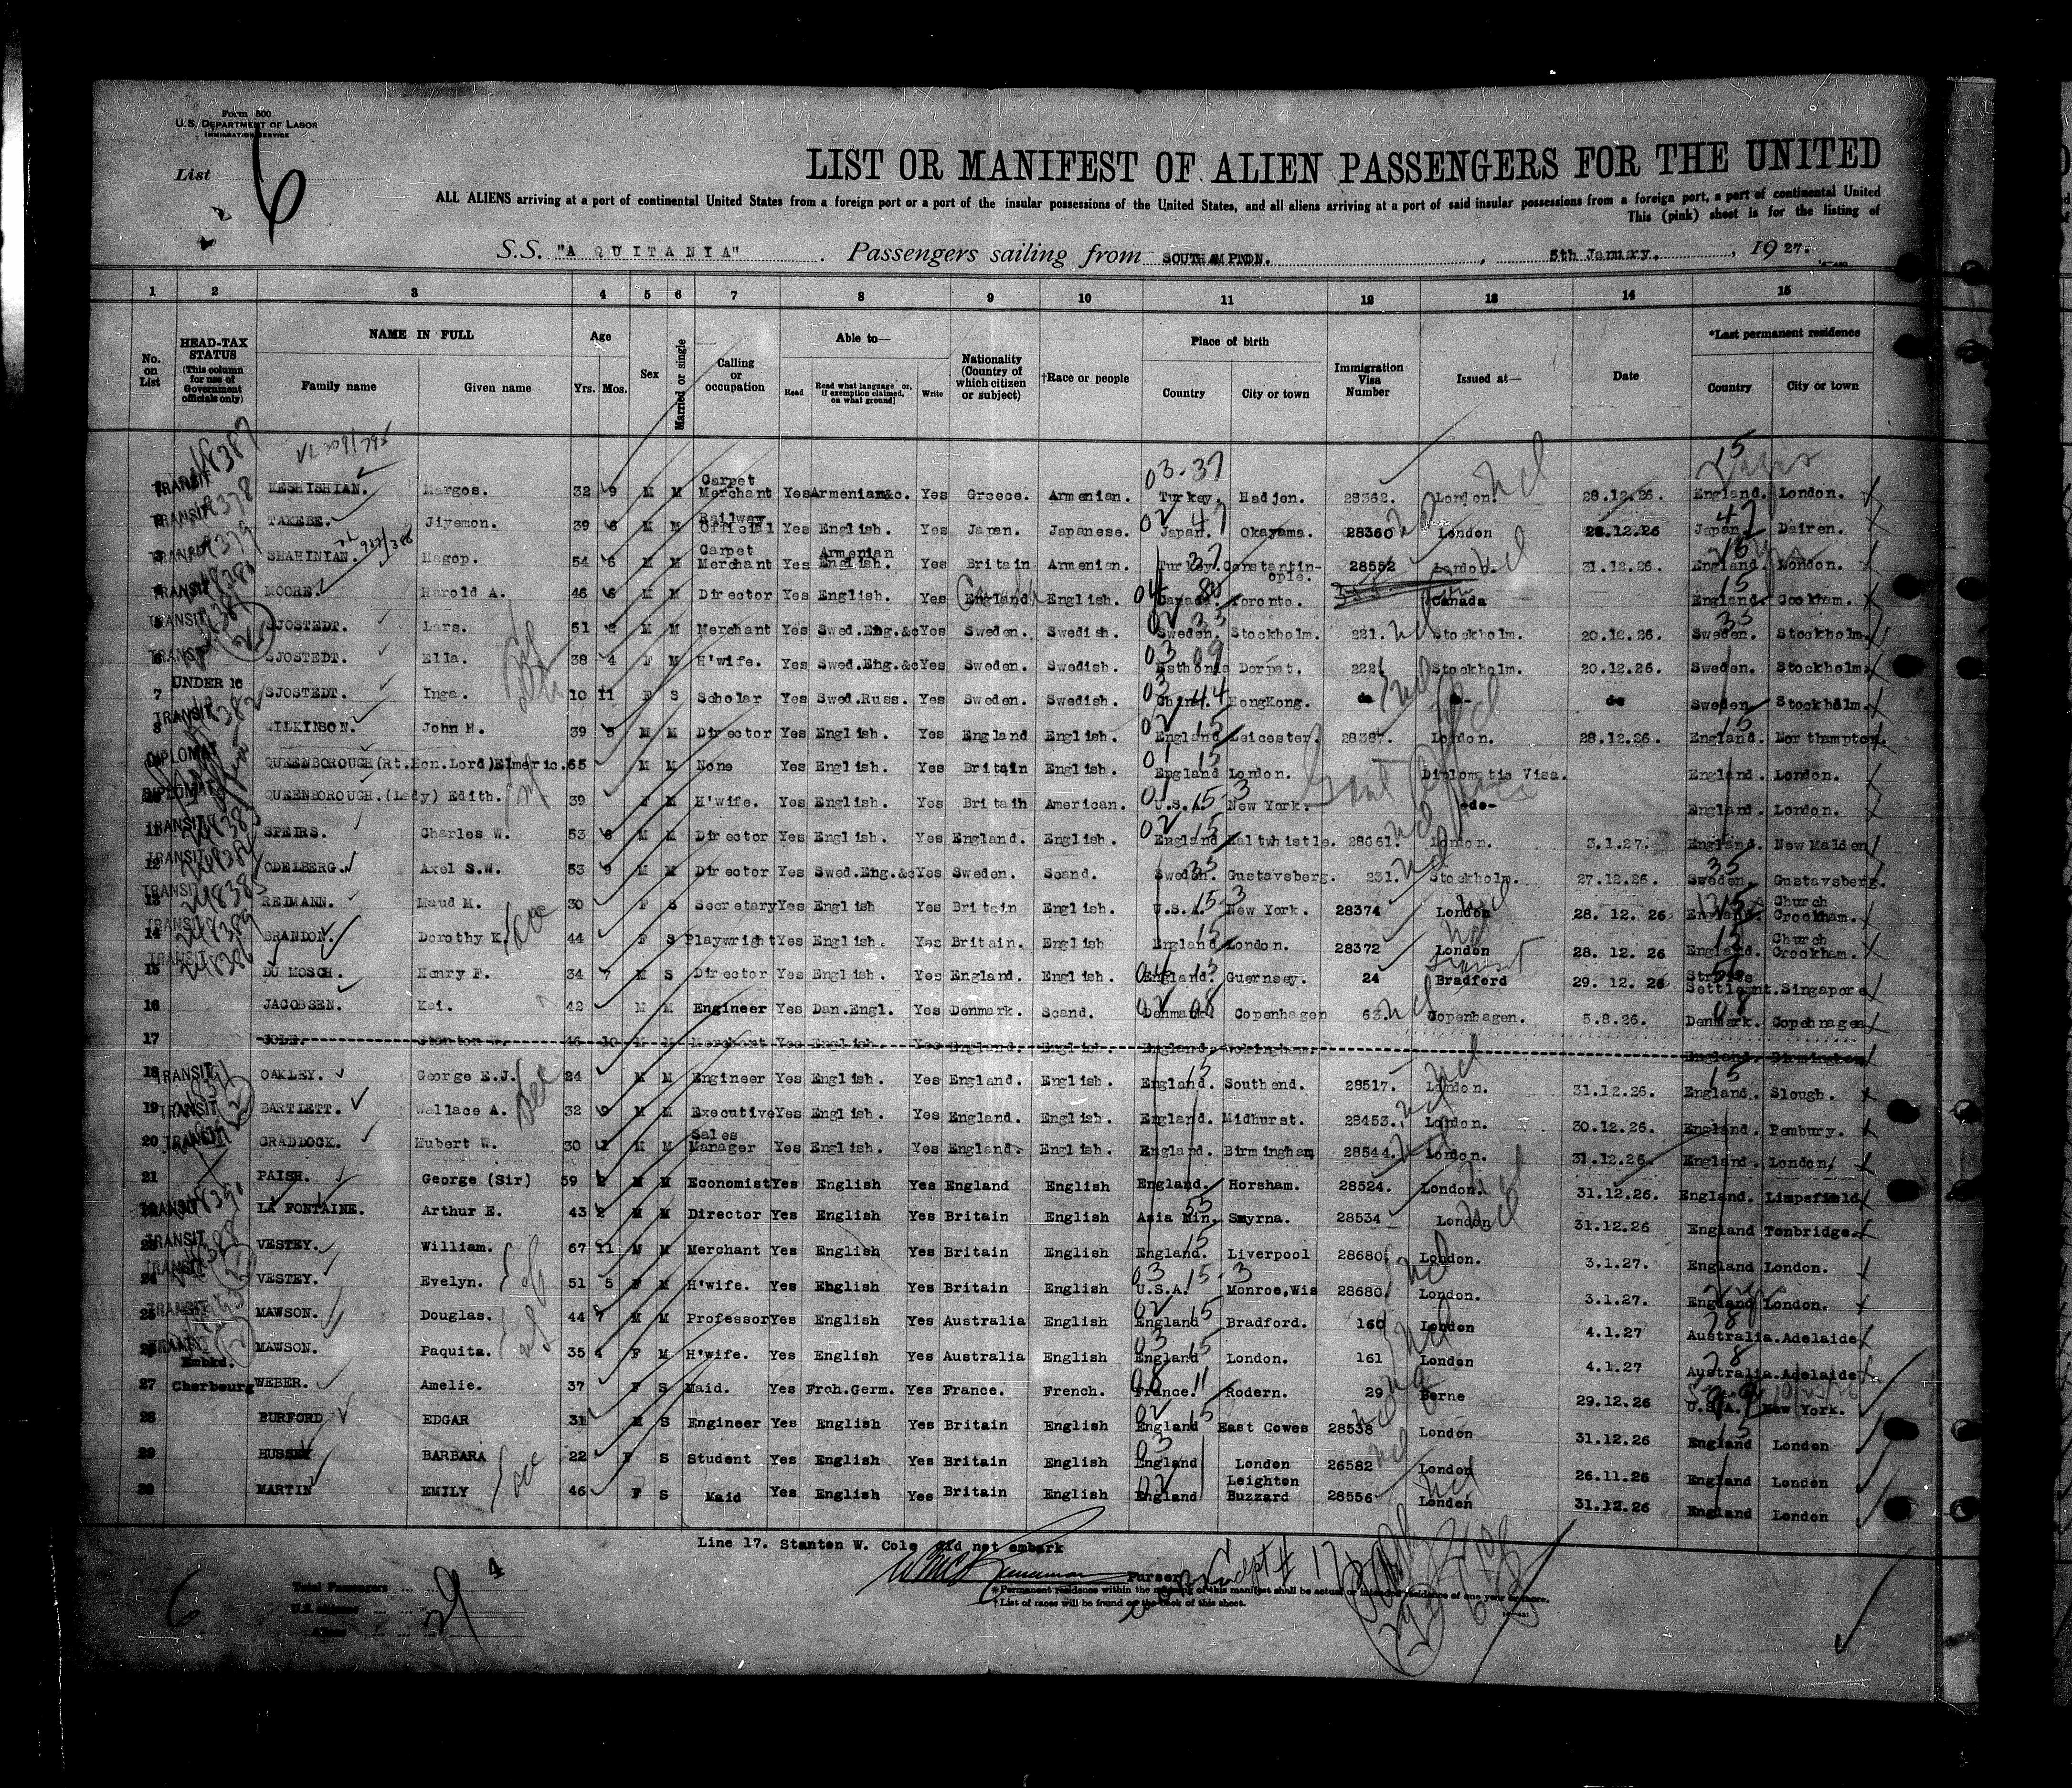 Form 500
U.S. DEPARTMENT OF LABOR
IMMIGRATION SERVICE
List 6
LIST OR MANIFEST OF ALIEN PASSENGERS FOR THE UNITED
ALL ALIENS arriving at a port of continental United States from a foreign port or a port of the insular possessions of the United States, and all aliens arriving at a port of said insular possessions from a foreign port, a port of continental United
This (pink) sheet is for the listing of
S.S. "AQUITANIA" Passengers sailing from SOUTHAMPTON. , 5th January. , 1927.
1 2 3 4 5 6 7 8 9 10 11 12 13 14 15
No. on List HEAD-TAX STATUS (This column for use of Government officials only) NAME IN FULL Family name Given name Age Yrs. Mos. Sex Married or single Calling or occupation Able to— Read Read what language or, if exemption claimed, on what ground] Write Nationality (Country of which citizen or subject) †Race or people Place of birth Country City or town Immigration Visa Number Issued at— Date *Last permanent residence Country City or town
TRANSIT KESHISHIAN. Margos. 32 9 M M Carpet Merchant Yes Armenian&c. Yes Greece. Armenian. Turkey. Hadjen. 28362. London. 28.12.26. England. London.
TRANSIT TAKEBE. Jiyemon. 39 6 M M Railway Official Yes English. Yes Japan. Japanese. Japan. Okayama. 28360 London 28.12.26 Japan. Dairen.
TRANSIT SHAHINIAN. Hagop. 54 6 M M Carpet Merchant Yes Armenian English. Yes Britain Armenian. Turkey. Constantinople. 28552 London. 31.12.26. England. London.
TRANSIT MOORE. Harold A. 46 6 M M Director Yes English. Yes England English. Canada. Toronto. Canada England. Cookham.
TRANSIT SJOSTEDT. Lars. 51 2 M M Merchant Yes Swed.Eng.&c Yes Sweden. Swedish. Sweden. Stockholm. 221. Stockholm. 20.12.26. Sweden. Stockholm.
SJOSTEDT. Ella. 38 4 F M H'wife. Yes Swed.Eng.&c Yes Sweden. Swedish. Esthonia Dorpat. 222 Stockholm. 20.12.26. Sweden. Stockholm.
7 UNDER 16 SJOSTEDT. Inga. 10 11 F S Scholar Yes Swed.Russ. Yes Sweden. Swedish. China. HongKong. do do Sweden Stockholm.
8 TRANSIT WILKINSON. John H. 39 5 M M Director Yes English. Yes England English. England Leicester. 28387. London. 28.12.26. England. Northampton.
DIPLOMAT QUEENBOROUGH(Rt.Hon.Lord)Elmeric. 65 M M None Yes English. Yes Britain English. England London. Diplomatic Visa. England. London.
DIPLOMAT QUEENBOROUGH.(Lady) Edith. 39 F M H'wife. Yes English. Yes Britain American. U.S.A. New York. -do- England. London.
11 TRANSIT SPEIRS. Charles W. 53 6 M M Director Yes English. Yes England. English. England Haltwhistle. 28661. London. 3.1.27. England. New Malden
12 TRANSIT ODELBERG. Axel S.W. 53 9 M M Director Yes Swed.Eng.&c Yes Sweden. Scand. Sweden. Gustavsberg. 231. Stockholm. 27.12.26. Sweden. Gustavsberg.
13 TRANSIT REIMANN. Maud M. 30 F S Secretary Yes English Yes Britain English. U.S.A. New York. 28374 London 28. 12. 26 England. Church Crookham.
14 TRANSIT BRANDON. Dorothy K. 44 F S Playwright Yes English. Yes Britain. English England London. 28372 London 28. 12. 26 England. Church Crookham.
15 TRANSIT DU MOSCH. Henry F. 34 7 M S Director Yes English. Yes England. English. England. Guernsey. 24 Bradford 29. 12. 26 Straits Settlemnt. Singapore
16 JACOBSEN. Kai. 42 M M Engineer Yes Dan.Engl. Yes Denmark. Scand. Denmark. Copenhagen 63. Copenhagen. 5.8.26. Denmark. Copenhagen
17 COLE. Stanton W. 46 10 M M Merchant Yes English Yes England. English. England. Wokingham. England. Birmingham
18 TRANSIT OAKLEY. George E.J. 24 M M Engineer Yes English. Yes England. English. England. Southend. 28517. London. 31.12.26. England. Slough.
19 TRANSIT BARTLETT. Wallace A. 32 9 M M Executive Yes English. Yes England. English. England. Midhurst. 28453. London. 30.12.26. England. Pembury.
20 TRANSIT CRADDOCK. Hubert W. 30 1 M M Sales Manager Yes English. Yes England. English. England. Birmingham 28544. London. 31.12.26. England. London.
21 PAISH. George (Sir) 59 2 M M Economist Yes English Yes England English England. Horsham. 28524. London. 31.12.26. England. Limpsfield
TRANSIT LA FONTAINE. Arthur E. 43 2 M M Director Yes English Yes Britain English Asia Min. Smyrna. 28534 London 31.12.26 England Tonbridge.
23 TRANSIT VESTEY. William. 67 11 M M Merchant Yes English Yes Britain English England. Liverpool 28680. London. 3.1.27. England London.
24 TRANSIT VESTEY. Evelyn. 51 5 F M H'wife. Yes English Yes Britain English U.S.A. Monroe,Wis 28680. London. 3.1.27. England London.
25 TRANSIT MAWSON. Douglas. 44 7 M M Professor Yes English Yes Australia English England Bradford. 160 London 4.1.27 Australia. Adelaide
26 TRANSIT MAWSON. Paquita. 35 4 F M H'wife. Yes English Yes Australia English England London. 161 London 4.1.27 Australia. Adelaide
27 Embkd. Cherbourg WEBER. Amelie. 37 F S Maid. Yes Frch.Germ. Yes France. French. France. Rodern. 29 Berne 29.12.26 U.S.A. New York.
28 BURFORD EDGAR 31 M S Engineer Yes English Yes Britain English England East Cowes 28538 London 31.12.26 England London
29 HUSSEY BARBARA 22 F S Student Yes English Yes Britain English England London 26582 London 26.11.26 England London
30 MARTIN EMILY 46 F S Maid Yes English Yes Britain English England Leighten Buzzard 28556 London 31.12.26 England London
Line 17. Stanton W. Cole did not embark
Purser
* Permanent residence within the meaning of this manifest shall be actual or intended residence of one year or more.
† List of races will be found on the back of this sheet.
Total Passengers
U.S. citizens
Aliens
29